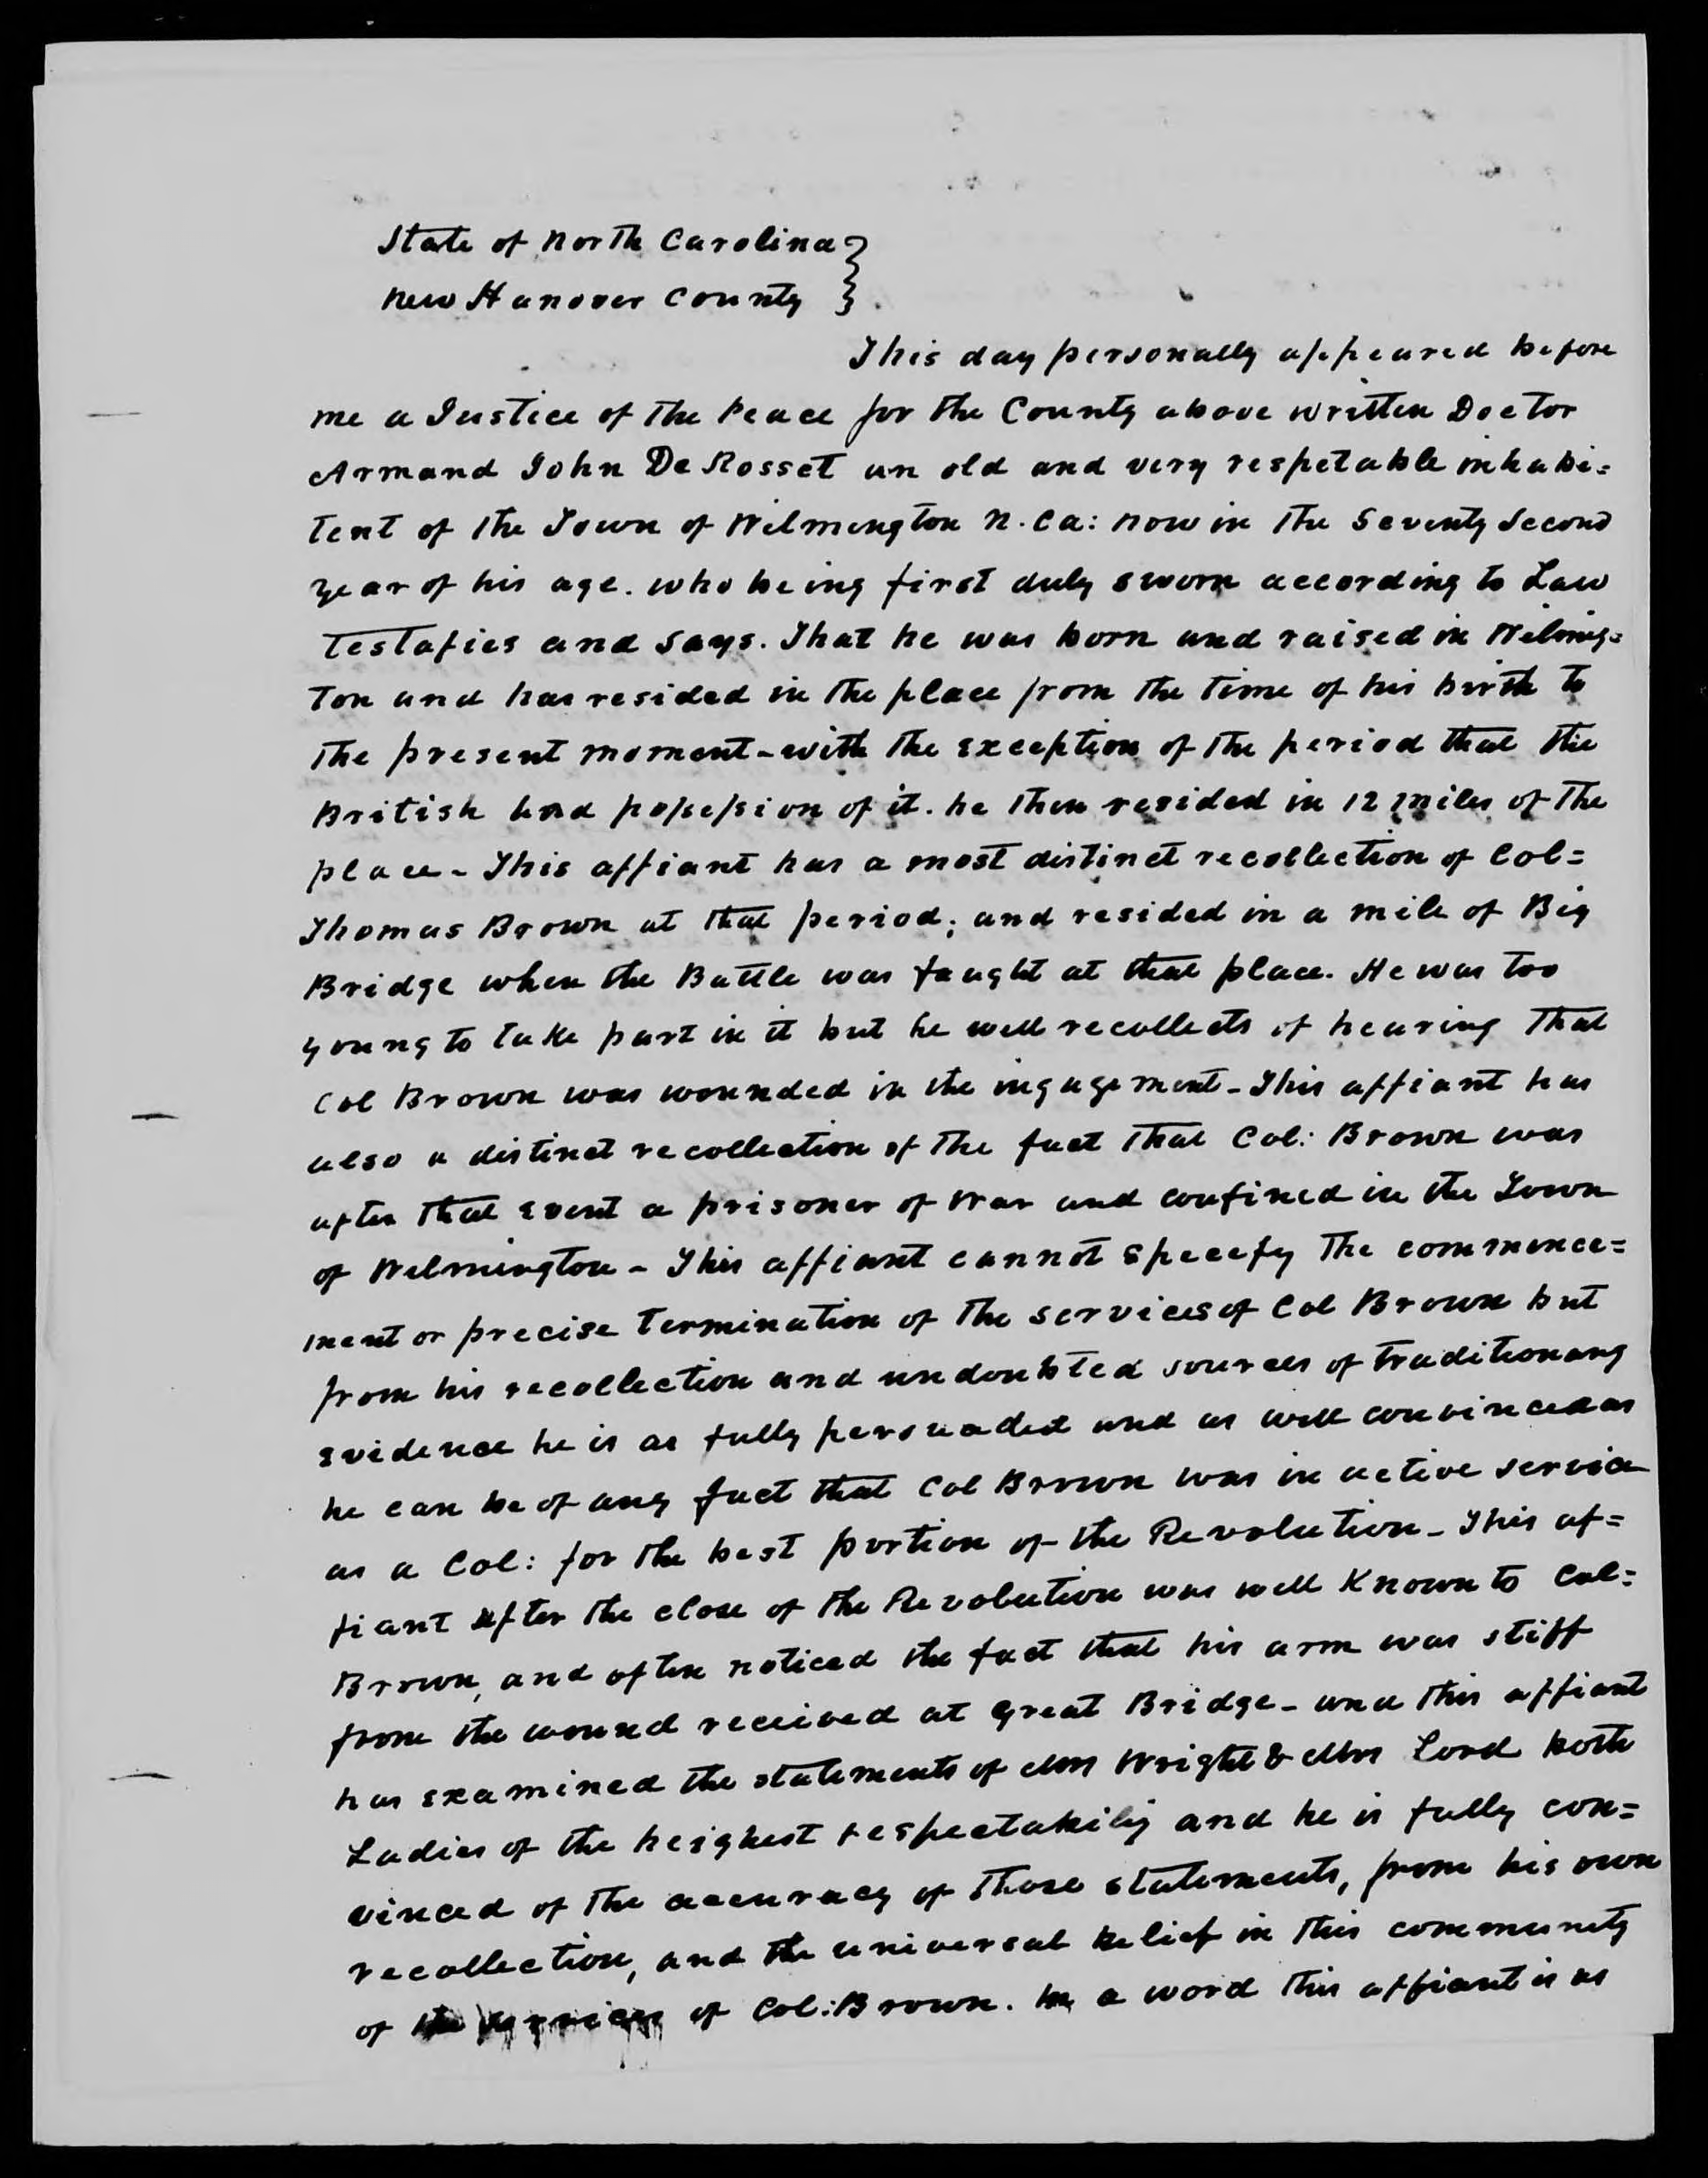 State of North Carolina }
New Hanover County }
This day personally appeared before
me a Justice of the Peace for the County above written Doctor
Armand John De Rosset an old and very respetable inhabi=
tent of the Town of Wilmington N. Ca: now in the Seventy Second
year of his age. who being first duly sworn according to Law
Testafies and Says. That he was born and raised in Wilmig=
ton and has resided in the place from the time of his birth to
the present moment - with the exception of the period that the
British had possession of it. he then resided in 12 miles of the
place - This affiant has a most distinct recollection of Col=
Thomas Brown at that period; and resided in a mile of Big
Bridge when the Battle was faught at that place. He was too
young to take part in it but he well recollects of hearing that
Col Brown was wounded in the ingagement - This affiant has
also a distinct recollection of the fact that Col: Brown was
after that event a prisoner of War and confined in the Town
of Wilmington - This affiant cannot specefy the commence=
ment or precise termination of the services of Col Brown but
from his recollection and undoubted sources of traditionary
evidence he is as fully persuaded and as well convinced as
he can be of any fact that Col Brown was in active service
as a Col: for the best portion of the Revolution - This af=
fiant after the close of the Revolution was well Known to Col=
Brown, and often noticed the fact that his arm was stiff
from the wound received at Great Bridge - and this affiant
has examined the statements of Mrs Wright & Mrs Lord both
Ladies of the heighest respectabiliy and he is fully con=
vinced of the accuracy of those statements, from his own
recollection, and the universal belief in this community
of the services of Col: Brown. In a word this affiant is as